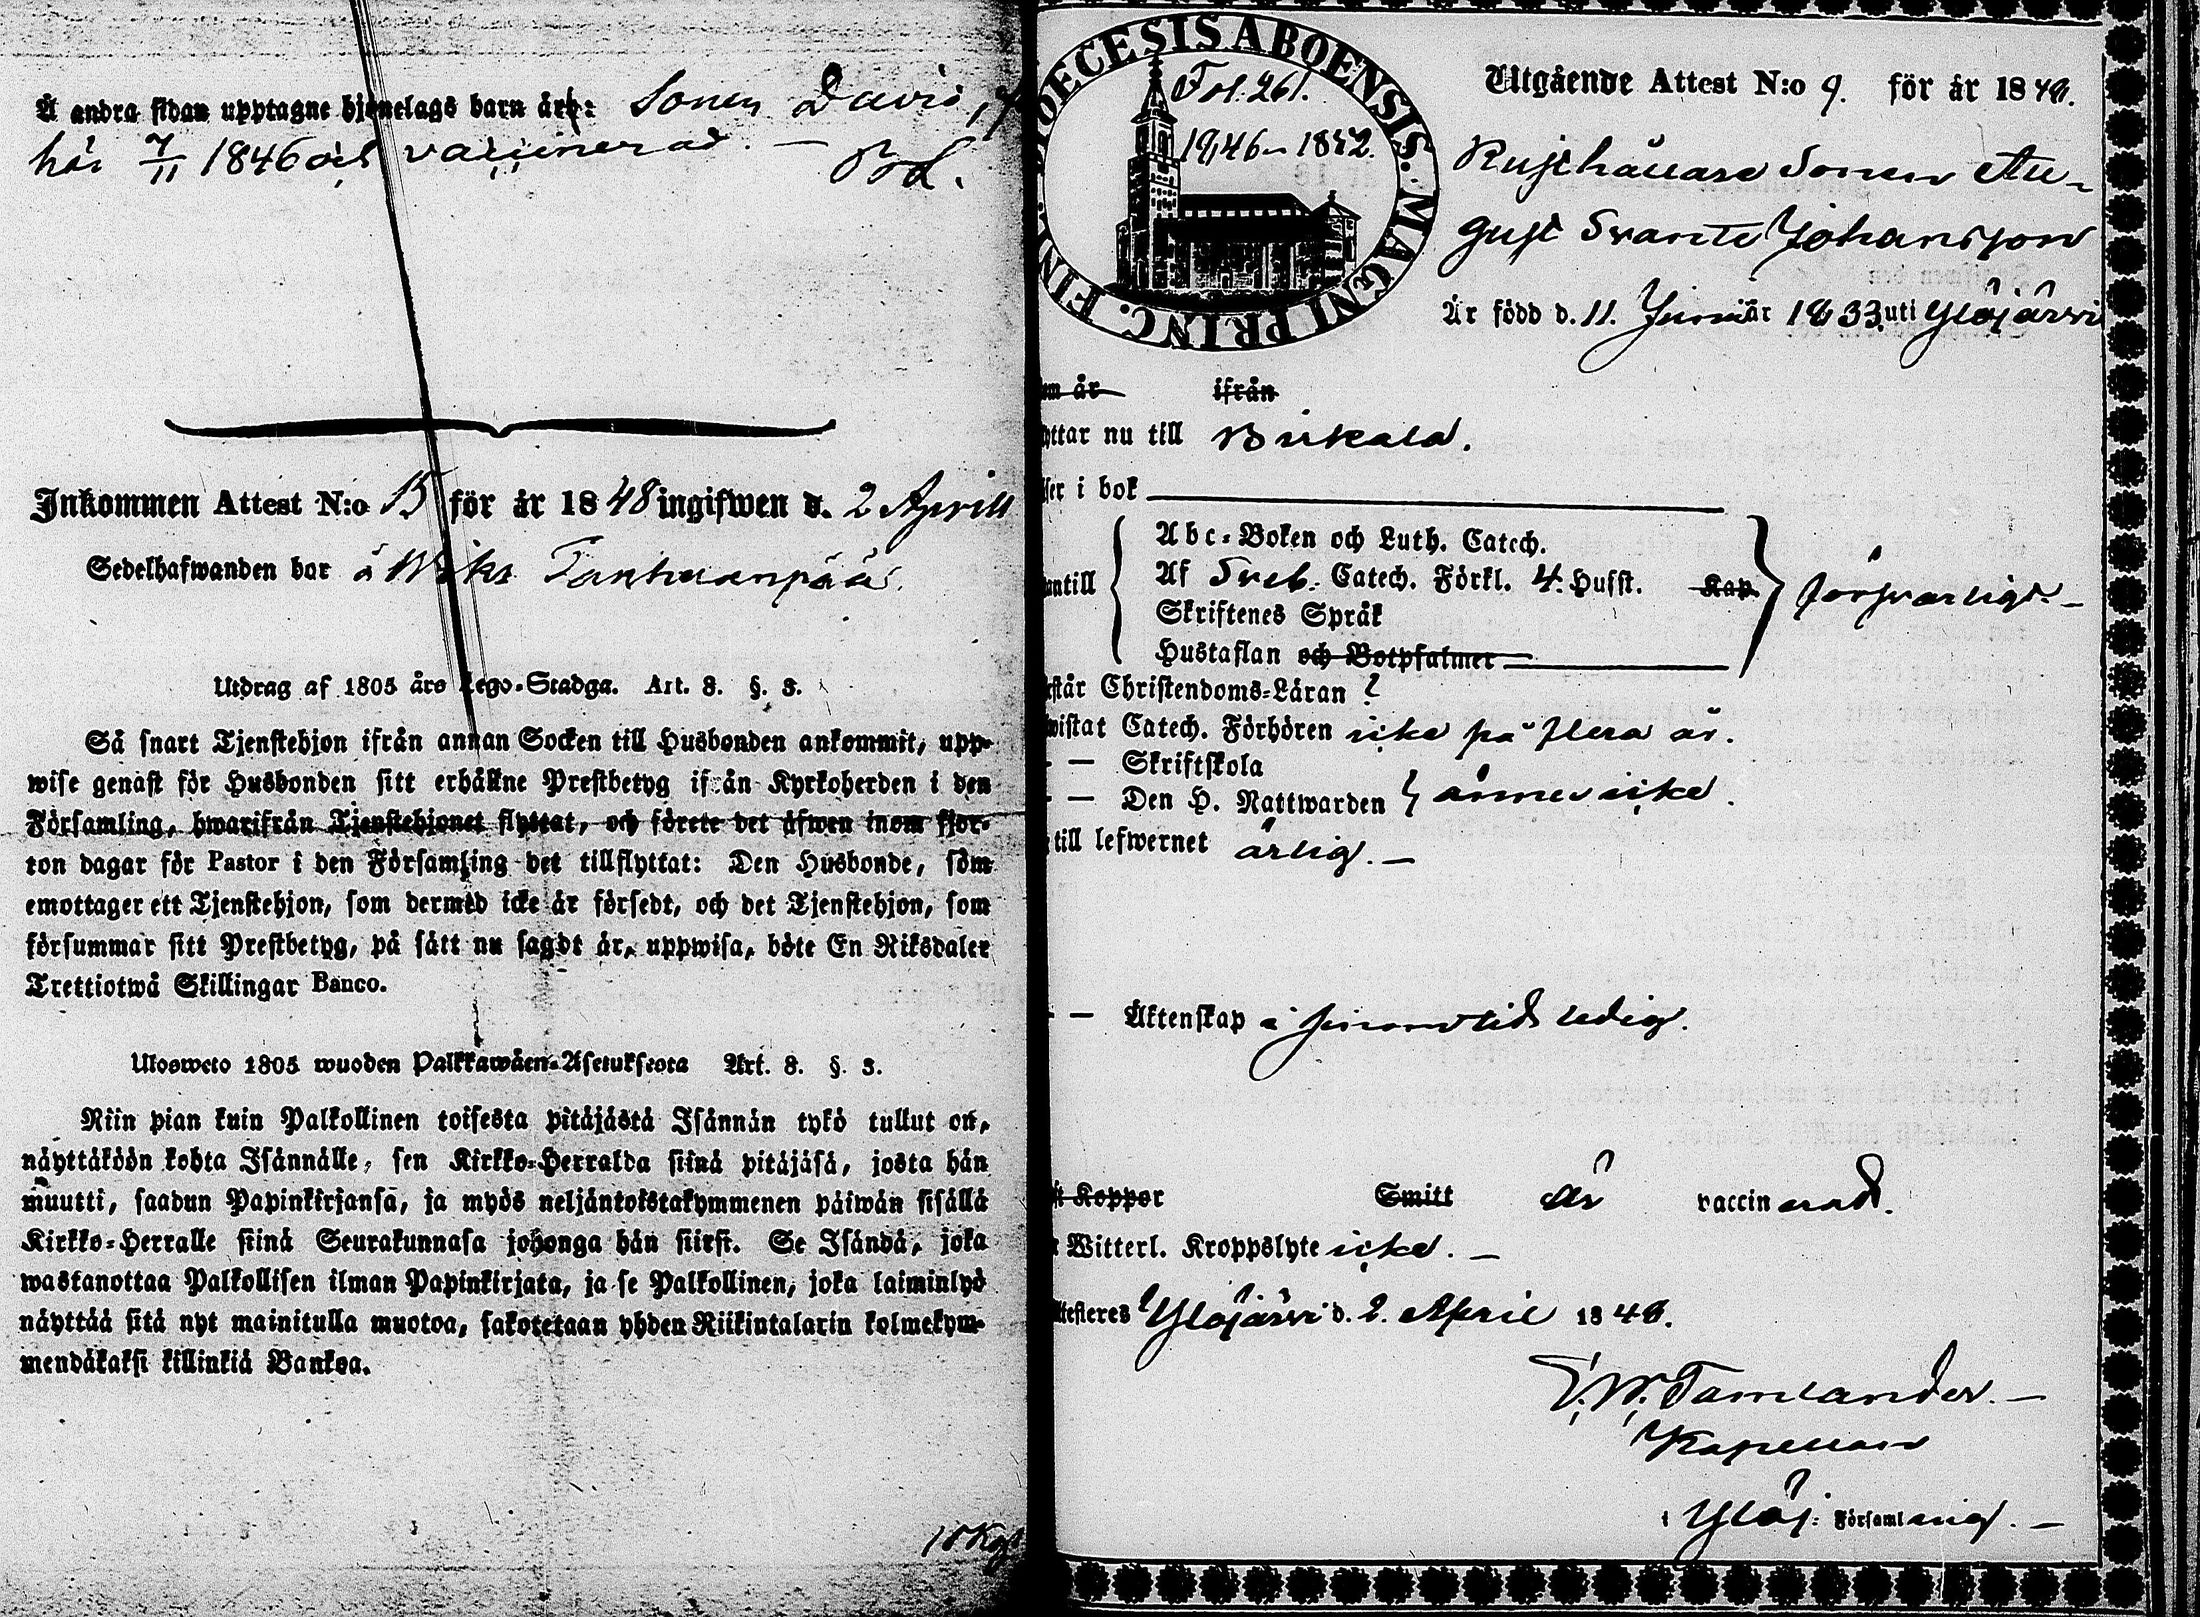 Å andra sidan upptagne hjonelags barn äro: Sonen David,
här 7/11 1846 och vaccinerad. —
Inkommen Attest N:o 15 för år 1848 ingifwen d. 2 Aprill
Sedelhafwanden bor å
Utdrag af 1805 års Lego-Stadga. Art. 8. §. 3.
Så snart Tjenstehjon ifrån annan Socken till Husbonden ankommit, upp-
wise genast för Husbonden sitt erhållne Prestbetyg ifrån Kyrkoherden i den
Församling, hwarifrån Tjenstehjonet flyttat, och förete det äfwen inom fjor-
ton dagar för Pastor i den Församling det tillflyttat: Den Husbonde, som
emottager ett Tjenstehjon, som dermed icke är försedt, och det Tjenstehjon, som
försummar sitt Prestbetyg, på sätt nu sagdt är, uppwisa, böte En Riksdaler
Trettiotwå Skillingar Banco.
Ulosweto 1805 wuoden Palkkawäen-Asetuksesta Art. 8. §. 3.
Niin pian kuin Palkollinen toisesta pitäjästä Isännän tykö tullut on,
näyttäköön kohta Isännälle, sen Kirkko-Herralda siinä pitäjäsä, josta hän
muutti, saadun Papinkirjansa, ja myös neljäntoistakymmenen päiwän sisällä
Kirkko-Herralle siinä Seurakunnasa johonga hän siirsi. Se Isändä, joka
wastanottaa Palkollisen ilman Papinkirjata, ja se Palkollinen, joka laiminlyö
näyttää sitä nyt mainitulla muotoa, sakotetaan yhden Riikintalarin kolmekym-
mendäkaksi killinkiä Bankoa.
DIOECESIS ABOENSIS. MAGNI PRINC. FINL.
Fol. 261.
1846 - 1852.
Utgående Attest N:o 9. för år 1848.
Rusthållare Sonen Au-
gust Svante Johansson
Är född d. 11. Januar 1833 uti Ylöjärvi
om år ifrån
yttar nu till Birkala.
ser i bok
Abc-Boken och Luth. Catech.
antill Af Sveb. Catech. Förkl. 4. Husst. Kap. försvarligt. —
Skriftenes Språk
Hustaflan och Botpsalmer
står Christendoms-Läran ?
wistat Catech. Förhören icke på flera år.
— Skriftskola
— Den H. Nattwarden ännu icke.
till lefwernet ärlig. —
— Äktenskap ledig.
t Koppor Smitt är vaccinerad.
Witterl. Kroppslyte icke. —
ttesteres Ylöjärvi d. 2. April 1848.
E. W. Tamlander. —
Kapellan
i Ylöj: Församling. —